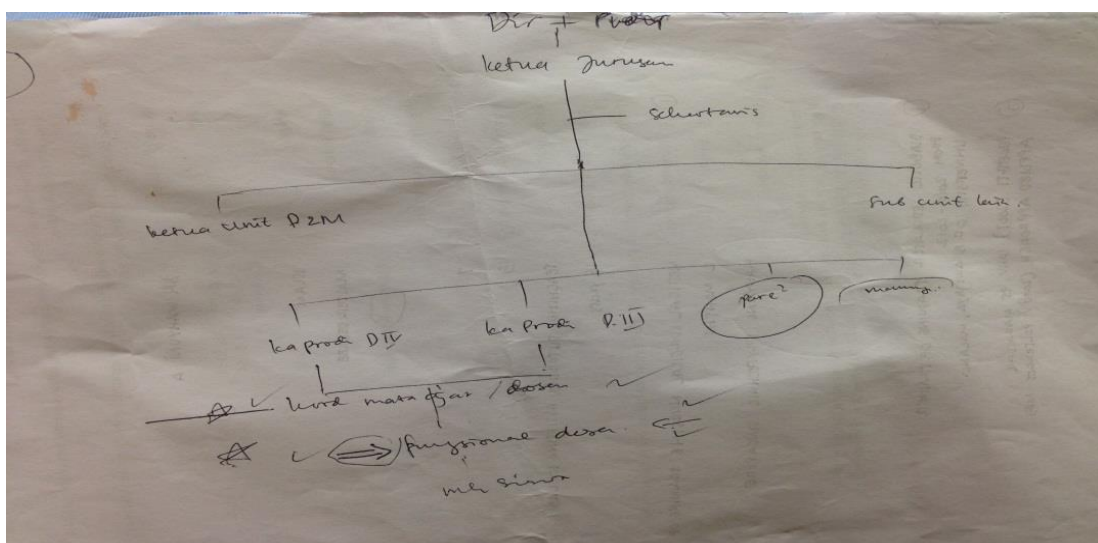 Dir + Pudir
Ketua Jurusan
Sekertaris
Ketua unit P2M
Sub unit lain.
Ka prodi DIV
ka Prodi D.III
pare²
kord mata ajar / dosen
fungsional dosen